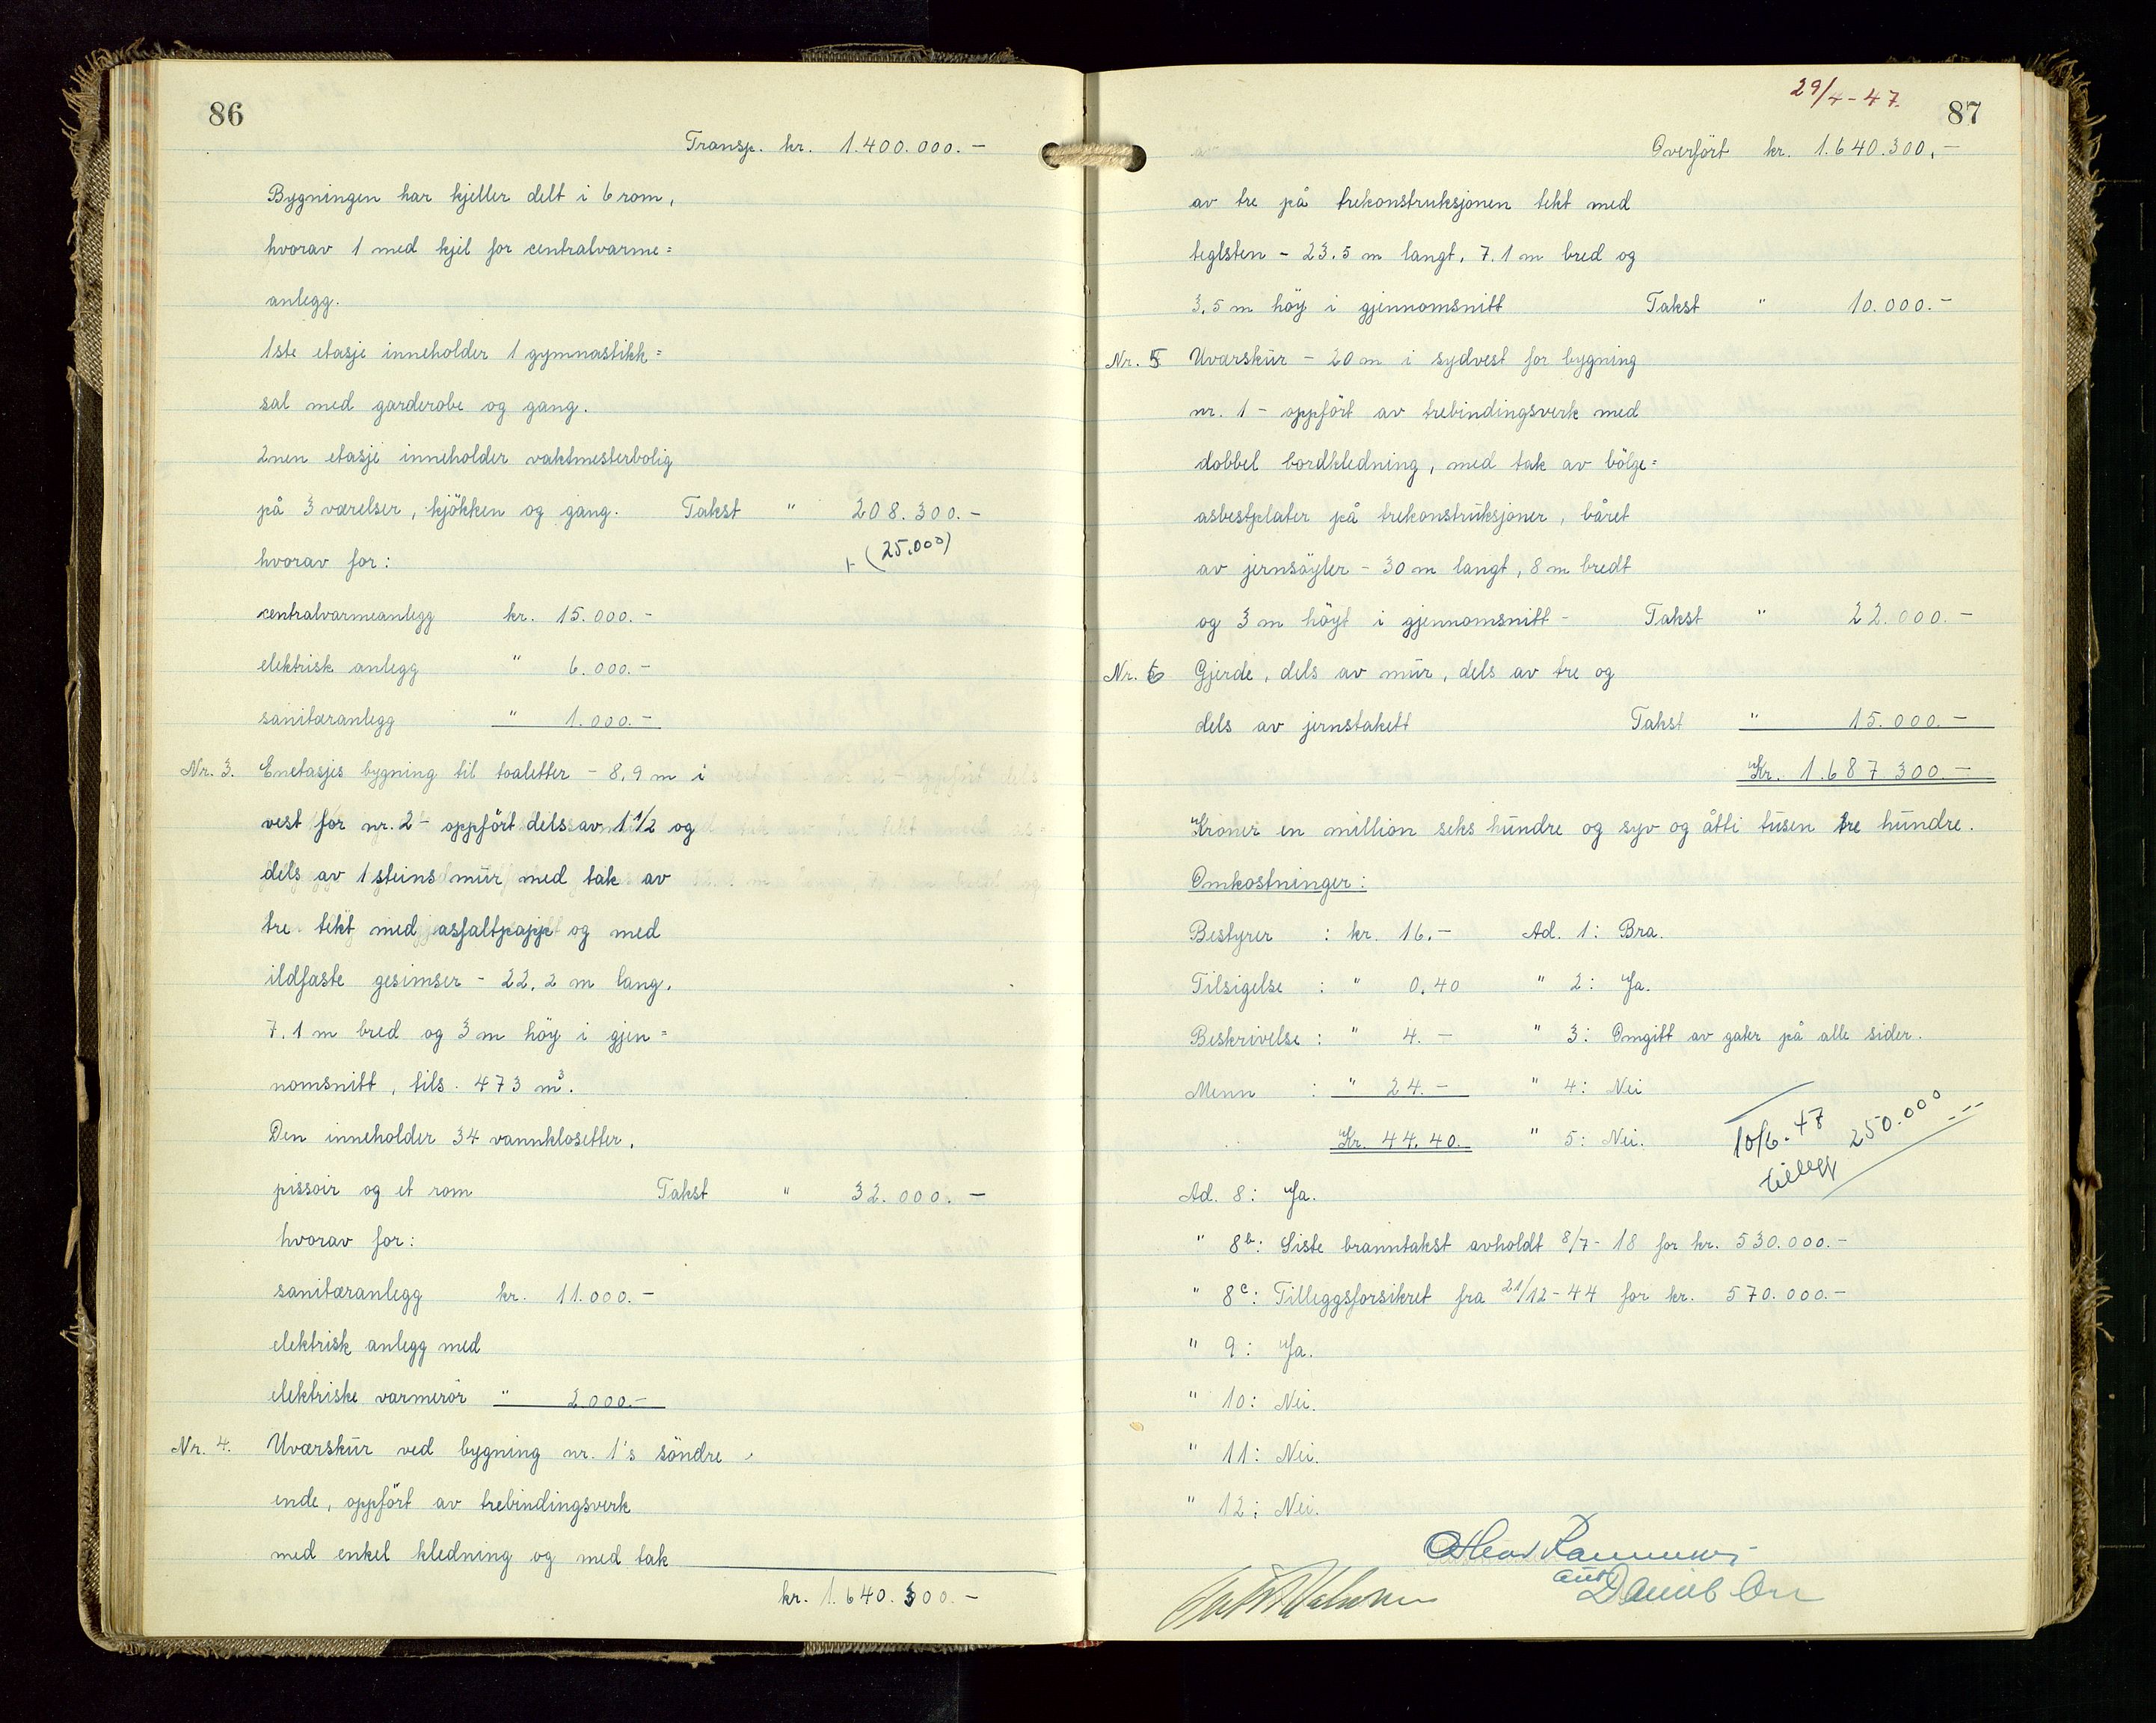 86
Transp. kr. 1.400.000.-
Bygningen har kjeller delt i 6 rom,
hvorav 1 med kjel for centralvarme=
anlegg.
1ste etasje inneholder 1 gymnastikk=
sal med garderobe og gang.
2nen etasje inneholder vaktmesterbolig
på 3 værelser, kjökken og gang. Takst " 208.300.-
+ (25.000)
hvorav for:
centralvarmeanlegg kr. 15.000.-
elektrisk anlegg " 6.000.-
sanitæranlegg " 1.000.-
Nr. 3. Enetasjes bygning til toaletter - 8,9 m i
vest for nr. 2 - oppfört dels av 1 1/2 og
dels av 1 steins mur, med tak av
tre tekt med asfaltpapp og med
ildfaste gesimser - 22,2 m lang,
7.1 m bred og 3 m höy i gjen=
nomsnitt, tils. 473 m³.
Den inneholder 34 vannklosetter,
pissoir og et rom Takst " 32.000.-
hvorav for:
sanitæranlegg kr. 11.000.-
elektrisk anlegg med
elektriske varmerör " 2.000.-
Nr. 4. Uværskur ved bygning nr. 1's söndre
ende, oppfört av trebindingsverk
med enkel kledning og med tak
kr. 1.640.300.-
29/4-47.
87
Overfört kr. 1.640.300,-
av tre på trekonstruksjonen tekt med
teglsten - 23.5 m langt, 7.1 m bred og
3,5 m höy i gjennomsnitt Takst " 10.000.-
Nr. 5 Uværskur - 20 m i sydvest for bygning
nr. 1 - oppfört av trebindingsverk med
dobbel bordkledning, med tak av bölge=
asbestplater på trekonstruksjoner, båret
av jernsöyler - 30 m langt, 8 m bredt
og 3 m höyt i gjennomsnitt - Takst " 22.000.-
Nr. 6 Gjerde, dels av mur, dels av tre og
dels av jernstakett Takst " 15.000.-
Kr. 1.687.300.-
Kroner en million seks hundre og syv og åtti tusen tre hundre.
Omkostninger:
Bestyrer : kr. 16.- Ad. 1: Bra.
Tilsigelse : " 0.40 " 2: Ja.
Beskrivelse : " 4.- " 3: Omgitt av gater på alle sider.
Menn : " 24.- " 4: Nei
Kr. 44.40. " 5: Nei.
10/6.47 250.000
tillegg
Ad. 8: Ja.
" 8b: Siste branntakst avholdt 8/7-18 for kr. 530.000.-
" 8c: Tilleggsforsikret fra 21/12-44 for kr. 570.000.-
" 9: Ja.
" 10: Nei.
" 11: Nei.
" 12: Nei.